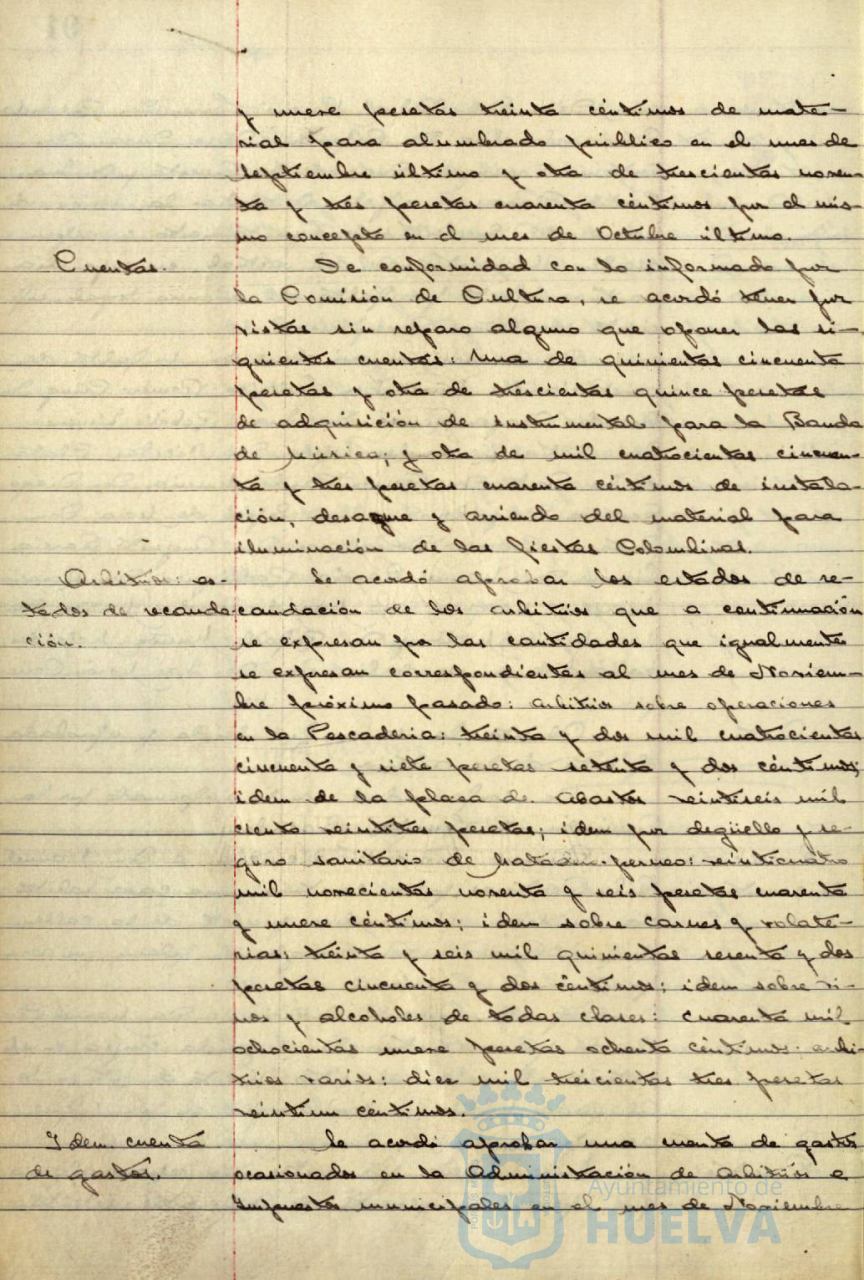 y nueve pesetas treinta céntimos de mate-
rial para alumbrado público en el mes de
Septiembre último y otra de trescientas noven-
ta y tres pesetas cuarenta céntimos por el mis-
mo concepto en el mes de Octubre último.
Cuentas.
De conformidad con lo informado por
la Comisión de Cultura, se acordó tener por
vistas sin reparo alguno que oponer las si-
guientes cuentas: Una de quinientas cincuenta
pesetas y otra de trescientas quince pesetas
de adquisición de instrumental para la Banda
de Música; y otra de mil cuatrocientas cincuen-
ta y tres pesetas cuarenta céntimos de instala-
ción, desague y arriendo del material para
iluminación de las fiestas Colombinas.
Arbitrios: es-
tados de recauda-
ción.
Se acordó aprobar los estados de re-
caudación de los arbitrios que a continuación
se expresan por las cantidades que igualmente
se expresan correspondientes al mes de Noviem-
bre próximo pasado: arbitrios sobre operaciones
en la Pescaderia: treinta y dos mil cuatrocientas
cincuenta y siete pesetas setenta y dos céntimos;
idem de la plaza de Abastos veintiseis mil
ciento veintitres pesetas; idem por degüello y se-
guro sanitario de
mil novecientas noventa y seis pesetas cuarenta
y nueve céntimos; idem sobre carnes y volate-
rias; treinta y seis mil quinientas sesenta y dos
pesetas cincuenta y dos céntimos; idem sobre vi-
nos y alcoholes de todas clases: cuarenta mil
ochocientas nueve pesetas ochenta céntimos: arbi-
trios varios: diez mil trescientas tres pesetas
veintiun céntimos.
Idem. cuenta
de gastos.
Se acordó aprobar una cuenta de gastos
ocasionados en la Administración de Arbitrios e
Impuestos municipales en el mes de Noviembre
Ayuntamiento de
HUELVA